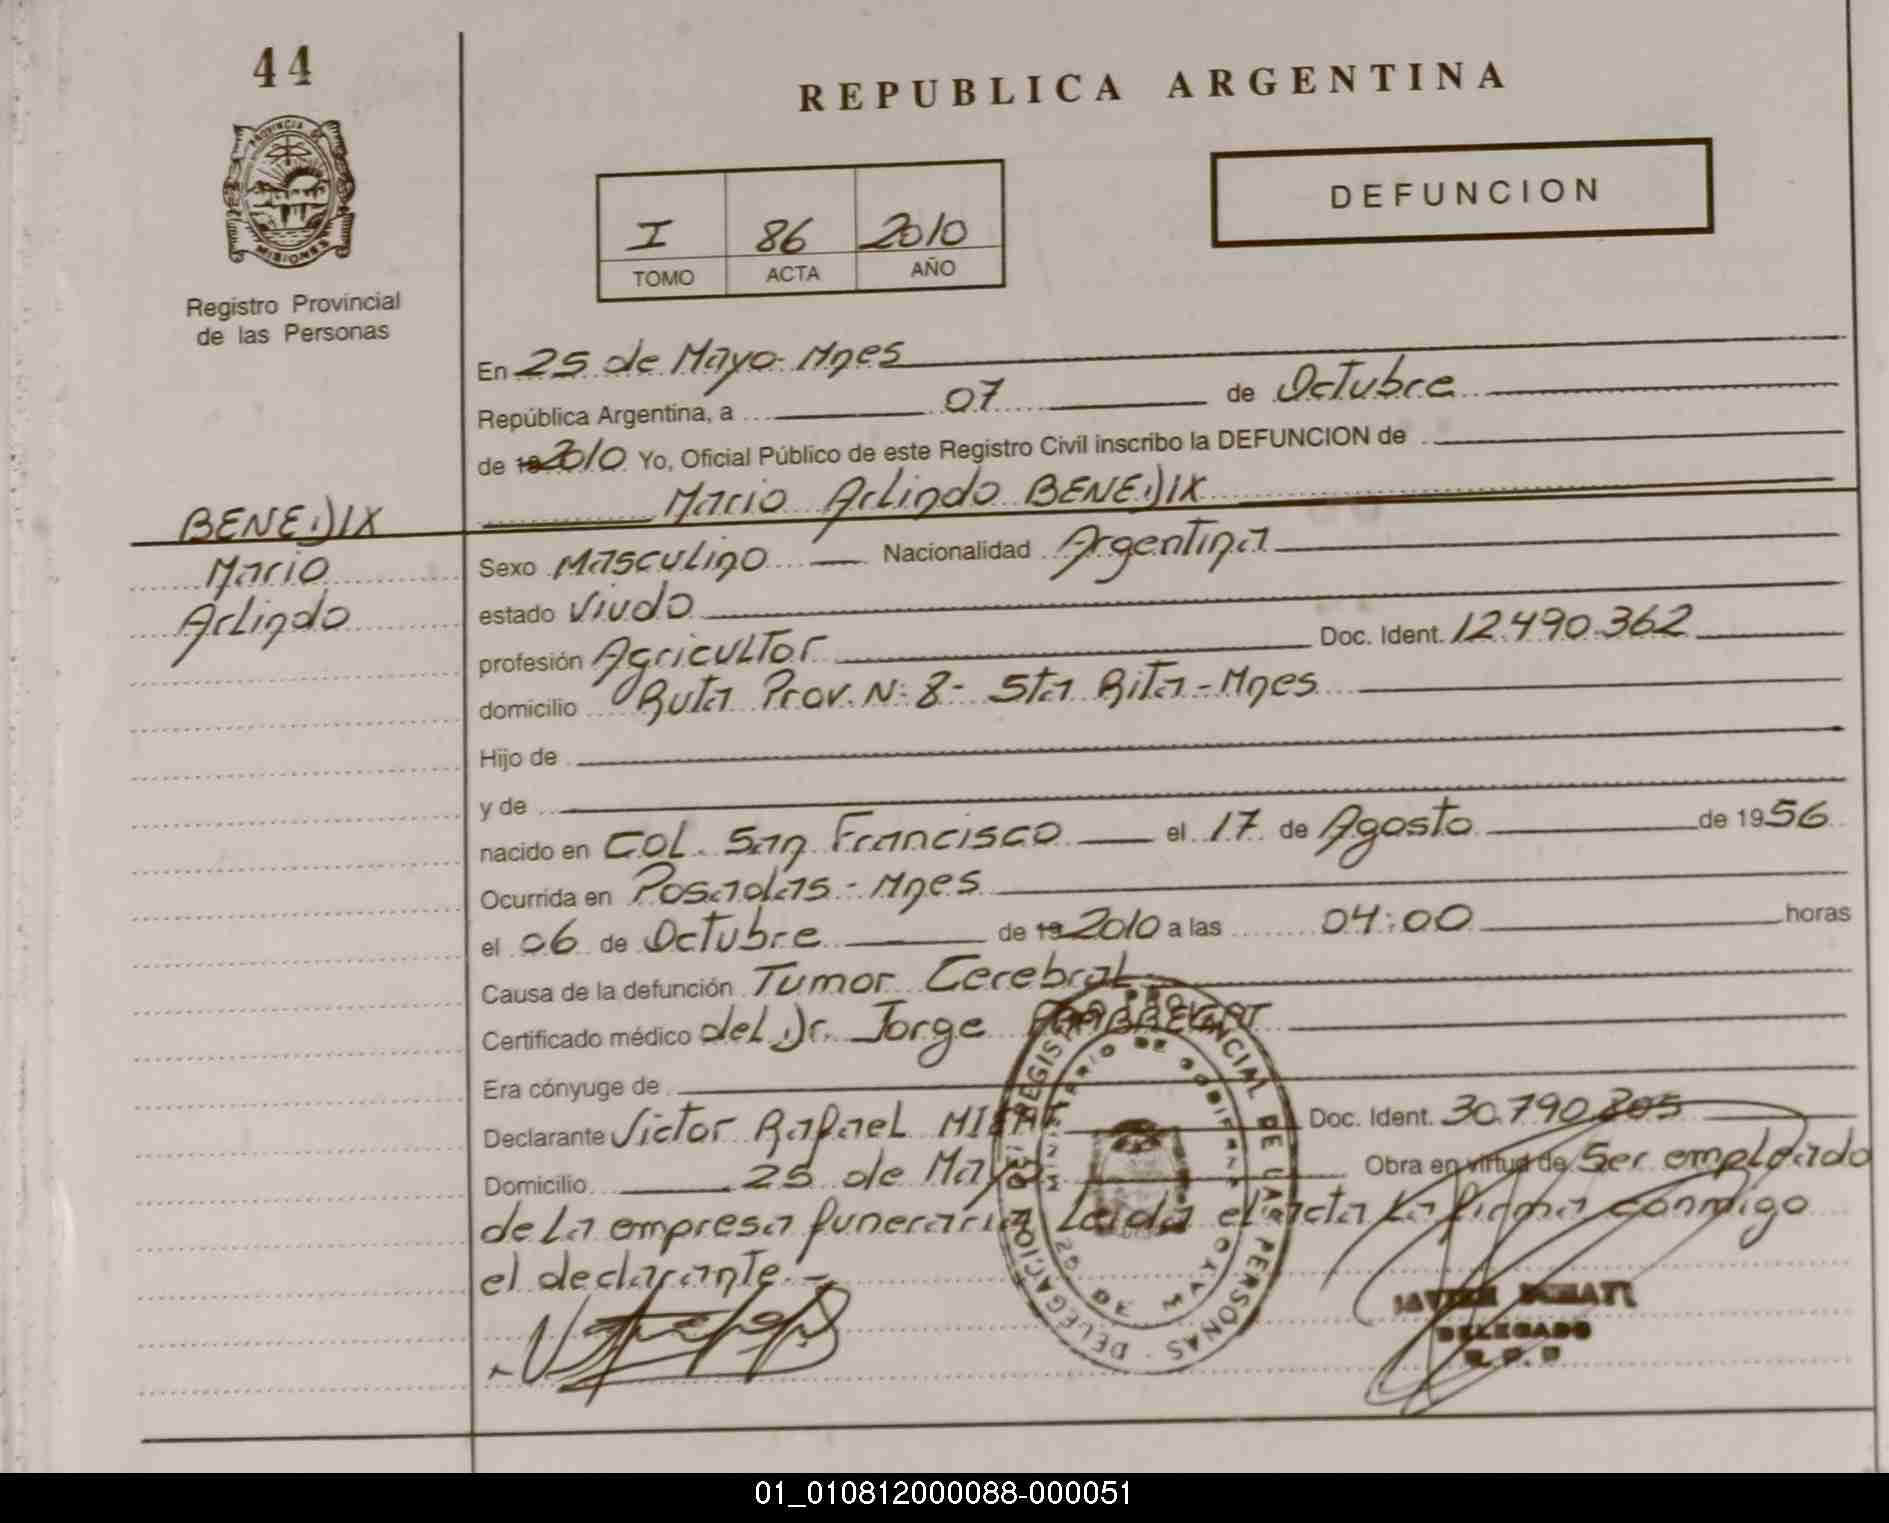 44
REPUBLICA ARGENTINA
PROVINCIA DE
MISIONES
Registro Provincial
de las Personas
I 86 2010
TOMO ACTA AÑO
DEFUNCION
En 25 de Mayo - Mnes
República Argentina, a 07 de Octubre
de 19 2010 Yo, Oficial Público de este Registro Civil inscribo la DEFUNCION de
Mario Arlindo BENEDIX
BENEDIX
Mario
Arlindo
Sexo Masculino Nacionalidad Argentina
estado Viudo
profesión Agricultor Doc. Ident. 12.490.362
domicilio Ruta Prov. Nº 8 - Sta Rita - Mnes
Hijo de
y de
nacido en COL. San Francisco el 17 de Agosto de 1956
Ocurrida en Posadas - Mnes
el 06 de Octubre de 19 2010 a las 04:00 horas
Causa de la defunción Tumor Cerebral
Certificado médico del Dr. Jorge
Era cónyuge de
Declarante Victor Rafael Doc. Ident. 30.790.805
Domicilio 25 de Mayo Obra en virtud de Ser empleado
de la empresa funeraria Leida el acta la firma conmigo
el declarante.-
DELEGACION DEL REGISTRO PROVINCIAL DE LAS PERSONAS
MINISTERIO DE GOBIERNO
25 DE MAYO
JAVIER
DELEGADO
R.P.P
01_010812000088-000051